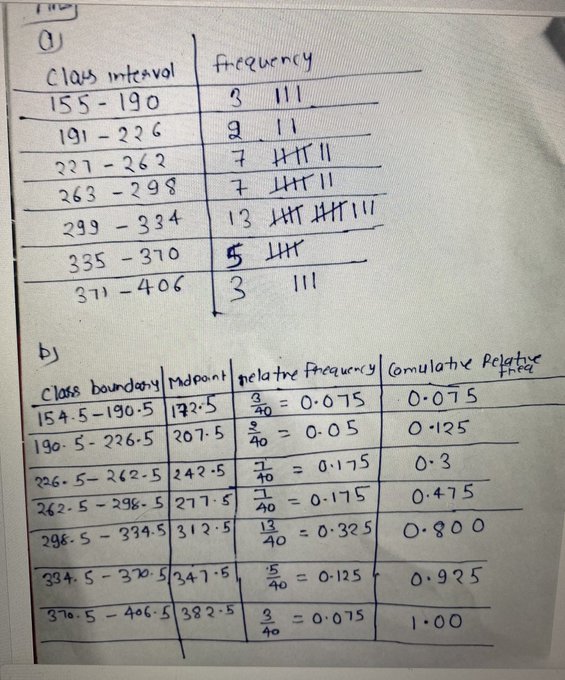 a)
Class interval frequency
155 - 190 3 III
191 - 226 2 II
227 - 262 7 IIII II
263 - 298 7 IIII II
299 - 334 13 IIII IIII III
335 - 370 5 IIII
371 - 406 3 III
b)
Class boundary Midpoint relative frequency Comulative Relative freq
154.5 - 190.5 172.5 3/40 = 0.075 0.075
190.5 - 226.5 207.5 2/40 = 0.05 0.125
226.5 - 262.5 242.5 7/40 = 0.175 0.3
262.5 - 298.5 277.5 7/40 = 0.175 0.475
298.5 - 334.5 312.5 13/40 = 0.325 0.800
334.5 - 370.5 347.5 5/40 = 0.125 0.925
370.5 - 406.5 382.5 3/40 = 0.075 1.00